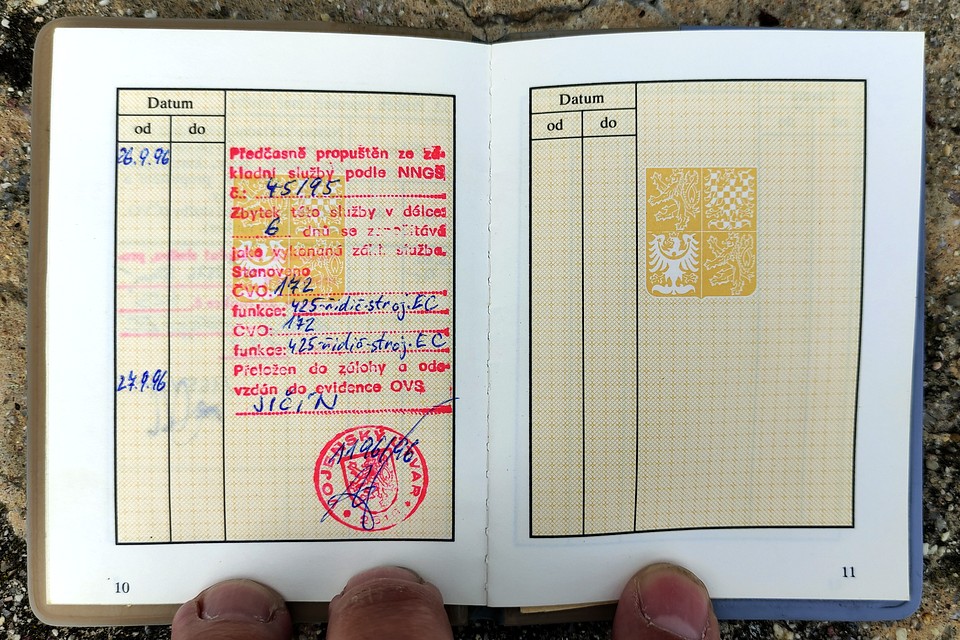 Datum
od do
26.9.96
Předčasně propuštěn ze zá-
kladní služby podle NNGŠ
č.: 45/95
Zbytek této služby v délce:
6 dnů se započítává
jako vykonaná zákl. služba.
Stanoveno
ČVO: 172
funkce: 425-řidič-stroj.EC
ČVO: 172
funkce: 425-řidič-stroj.EC
Přeložen do zálohy a ode-
27.9.96 vzdán do evidence OVS
JIČÍN
VOJENSKÝ ÚTVAR
1196/96
10
Datum
od do
11